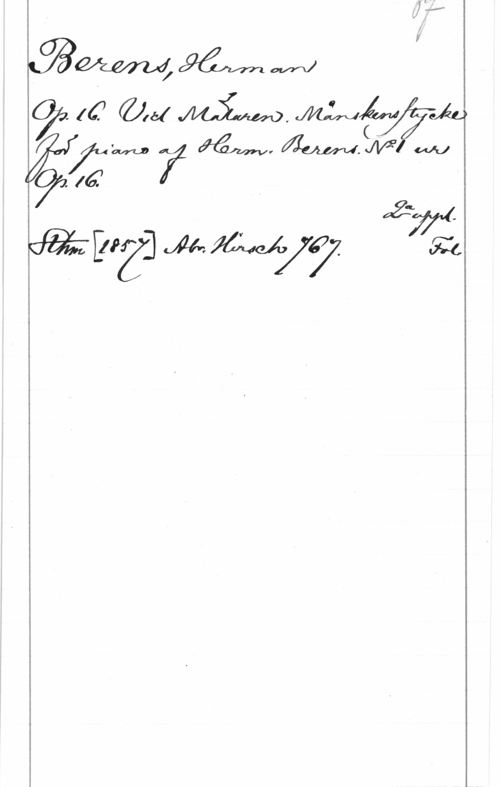 67
Berens, Herman
Op. 16. Vid Mälaren. Månskensstycke
för piano af Herm. Berens. № 1 ur
Op. 16.
2a uppl.
Sthm [1857] Abr. Hirsch 767. Fol.